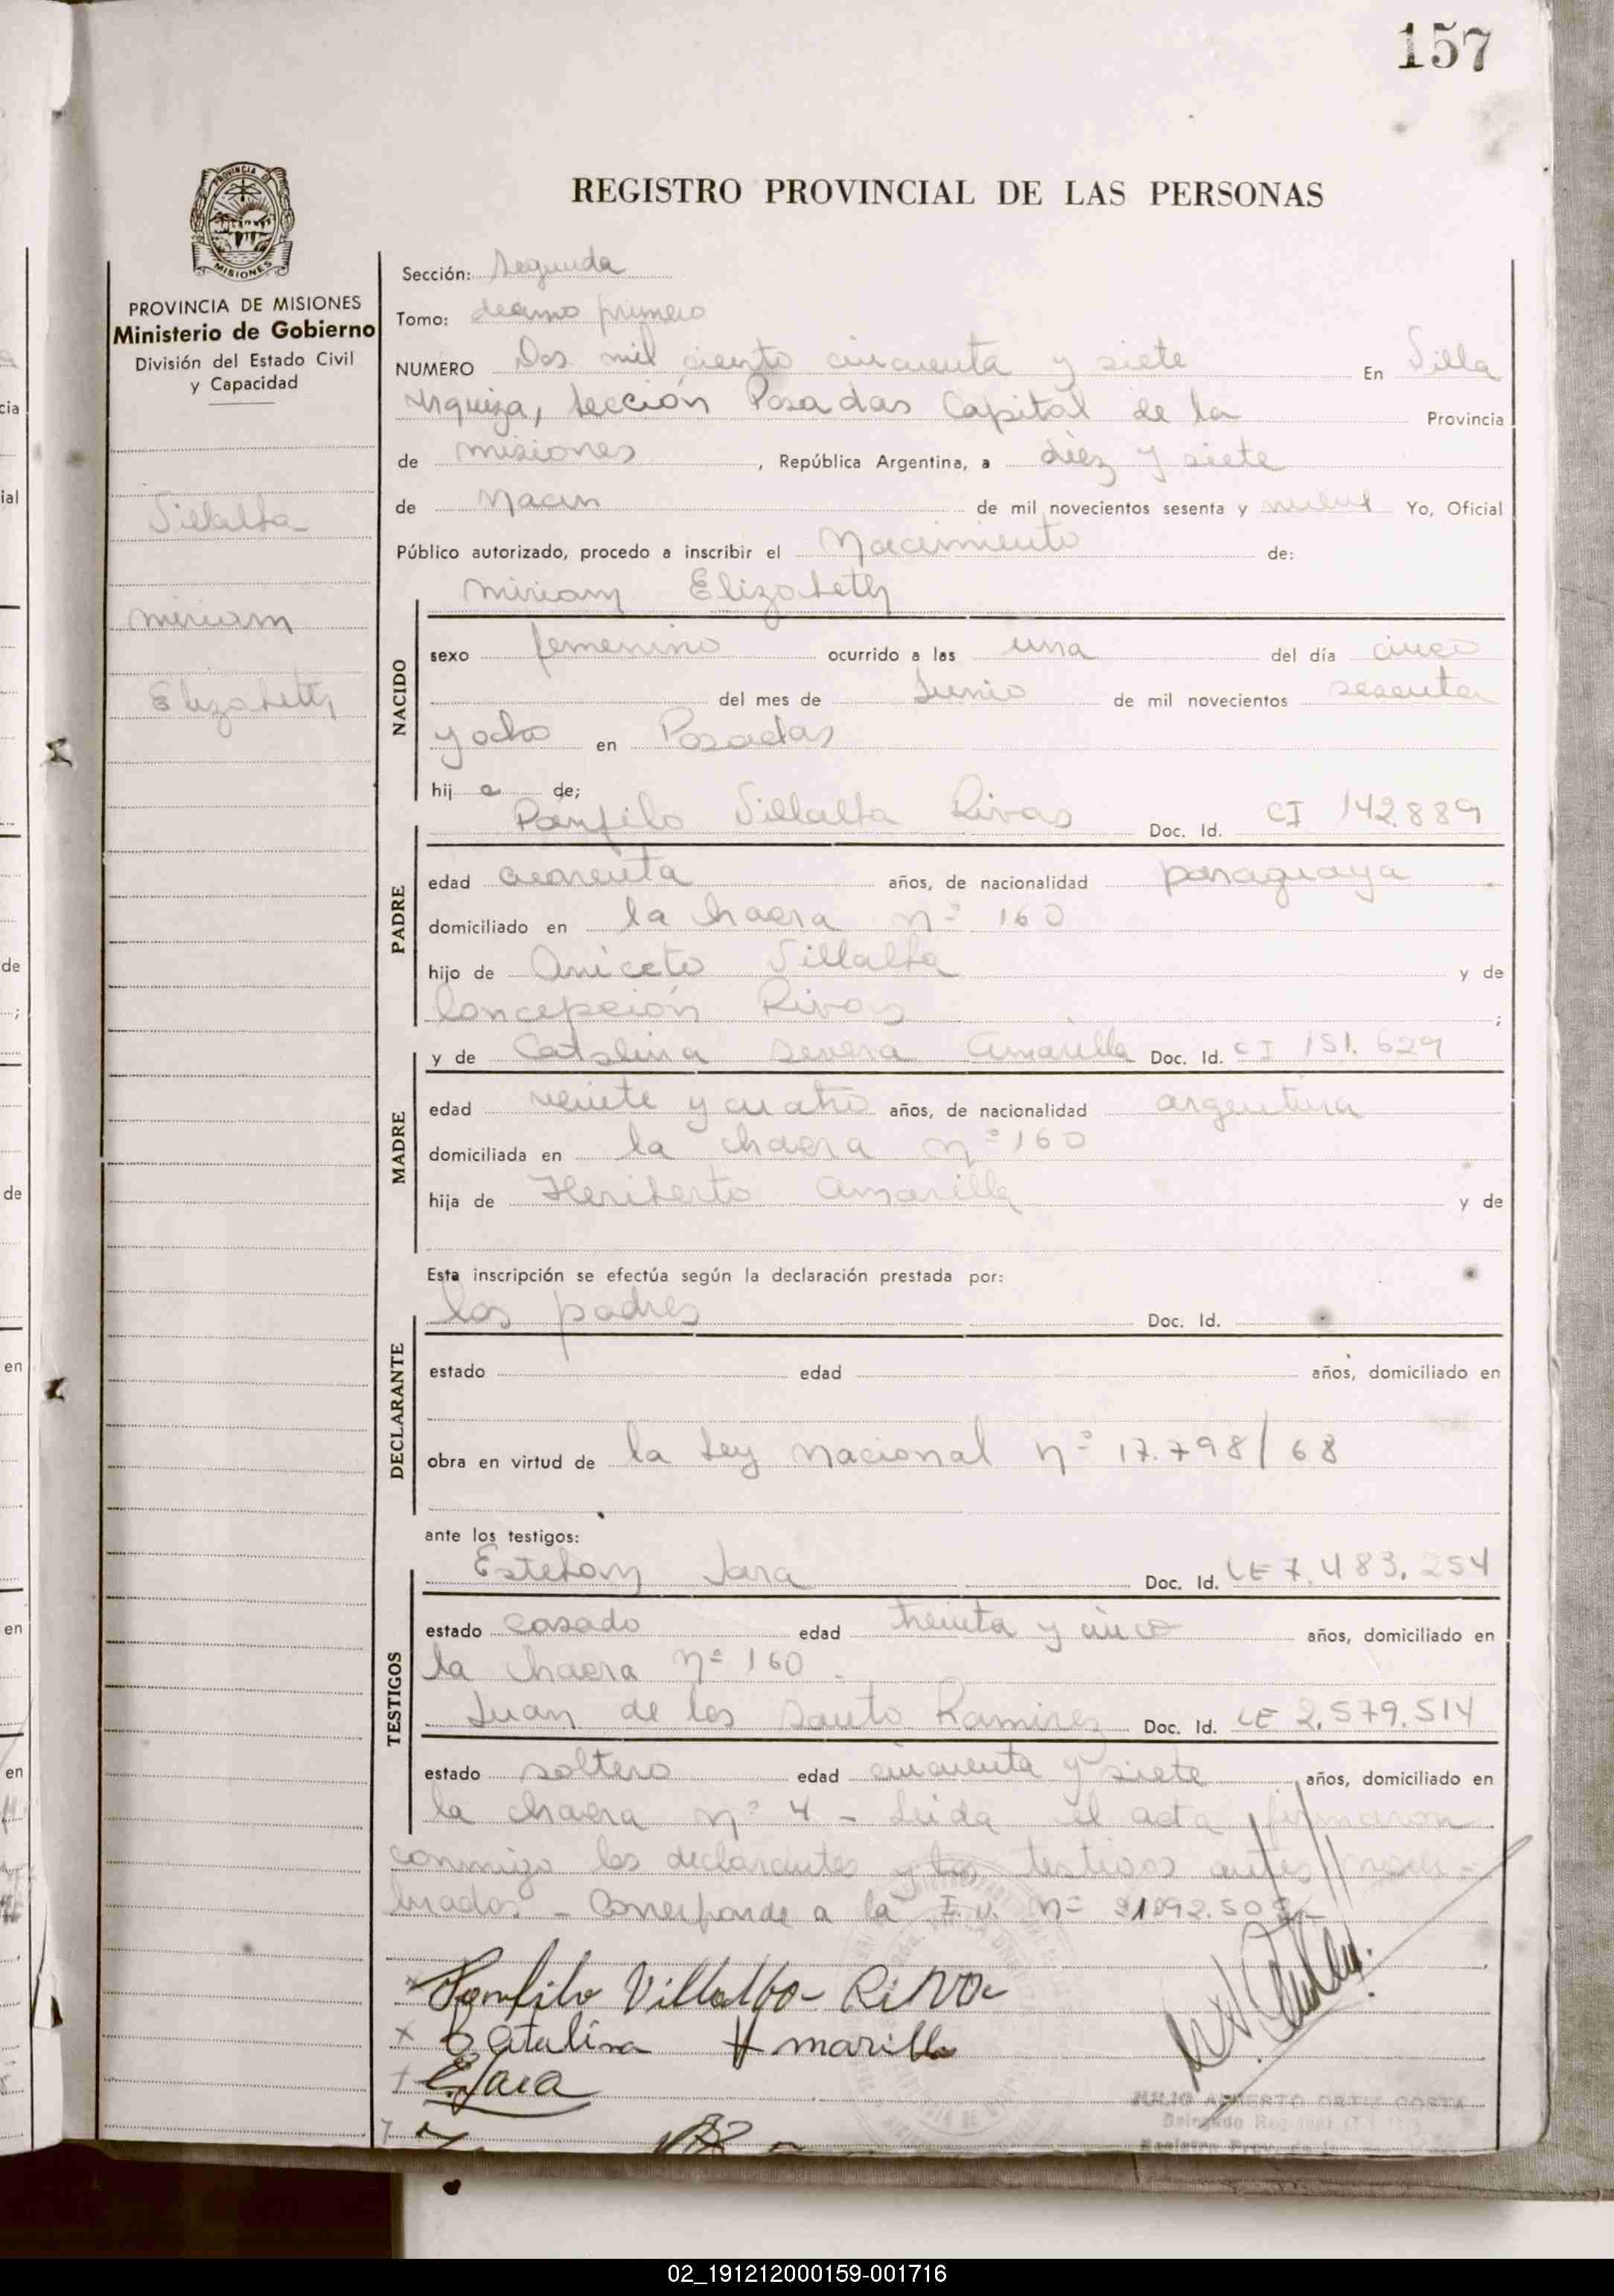 157
REGISTRO PROVINCIAL DE LAS PERSONAS
PROVINCIA DE MISIONES
Ministerio de Gobierno
División del Estado Civil
y Capacidad
Villalba
Miriam
Elizabeth
Sección: Segunda
Tomo: decimo primero
NUMERO Dos mil ciento cincuenta y siete En Villa
Urquiza, Sección Posadas Capital de la Provincia
de Misiones, República Argentina, a diez y siete
de Marzo de mil novecientos sesenta y nueve Yo, Oficial
Público autorizado, procedo a inscribir el Nacimiento de:
Miriam Elizabeth
NACIDO
sexo femenino ocurrido a las una del día cinco
del mes de Junio de mil novecientos sesenta
y ocho en Posadas
hij a de;
Pánfilo Villalba Rivas Doc. Id. CI 142.889
PADRE
edad cuarenta años, de nacionalidad paraguaya
domiciliado en la chacra nº 160
hijo de Aniceto Villalba y de
Concepción Rivas ;
y de Catalina Severa Amarilla Doc. Id. CI 151.629
MADRE
edad veinte y cuatro años, de nacionalidad argentina
domiciliada en la chacra nº 160
hija de Heriberto Amarilla y de
Esta inscripción se efectúa según la declaración prestada por:
los padres Doc. Id.
DECLARANTE
estado edad años, domiciliado en
obra en virtud de la Ley Nacional nº 17.798/68
ante los testigos:
Esteban Jara Doc. Id. LE 7.483.254
TESTIGOS
estado casado edad treinta y cinco años, domiciliado en
la chacra nº 160.
Juan de los Santo Ramirez Doc. Id. LE 2.579.514
estado soltero edad cincuenta y siete años, domiciliado en
la chacra nº 4 - Leida el acta firmaron
conmigo los declarantes y los testigos antes nom-
brados. - Corresponde a la I.N. nº
Panfilo Villalba Riva
Catalina Amarilla
E. Jara
JULIO ALBERTO ORTIZ COSTA
02_191212000159-001716